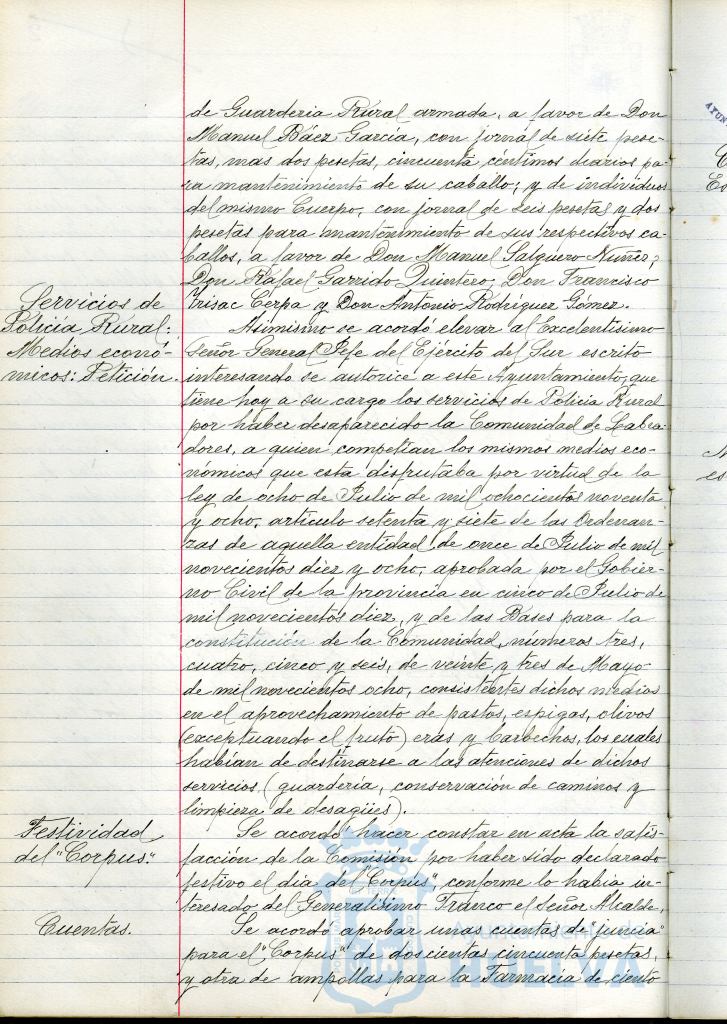 de Guarderia Rural armada, a favor de Don
Manuel Báez García, con jornal de siete pese-
tas, mas dos pesetas, cincuenta céntimos diarios pa-
ra mantenimiento de su caballo; y de individuos
del mismo Cuerpo, con jornal de seis pesetas y dos
pesetas para mantenimiento de sus respectivos ca-
ballos, a favor de Don Manuel Salguero Núñez;
Don Rafael Garrido Quintero, Don Francisco
Trisac Cerpa y Don Antonio Rodríguez Gómez.
Servicios de
Policía Rural:
Medios econó-
micos: Petición.
Asimismo se acordó elevar al Excelentísimo
Señor General Jefe del Ejército del Sur escrito
interesando se autorice a este Ayuntamiento, que
tiene hoy a su cargo los servicios de Policía Rural
por haber desaparecido la Comunidad de Labra-
dores, a quien competían los mismos medios eco-
nómicos que esta disfrutaba por virtud de la
ley de ocho de Julio de mil ochocientos noventa
y ocho, artículo setenta y siete de las Ordenan-
zas de aquella entidad de once de Julio de mil
novecientos diez y ocho, aprobada por el Gobier-
no Civil de la provincia en cinco de Julio de
mil novecientos diez, y de las Bases para la
constitución de la Comunidad, números tres,
cuatro, cinco y seis, de veinte y tres de Mayo
de mil novecientos ocho, consistentes dichos medios
en el aprovechamiento de pastos, espigas, olivos
(exceptuando el fruto) eras y barbechos, los cuales
habían de destinarse a las atenciones de dichos
servicios (guardería, conservación de caminos y
limpieza de desagües).
Festividad
del "Corpus"
Se acordó hacer constar en acta la satis-
facción de la Comisión por haber sido declarado
festivo el día del "Corpus", conforme lo había in-
teresado del Generalísimo Franco el Señor Alcalde.
Cuentas.
Se acordó aprobar unas cuentas de "juncia"
para el "Corpus" de doscientas cincuenta pesetas,
y otra de ampollas para la Farmacia de ciento